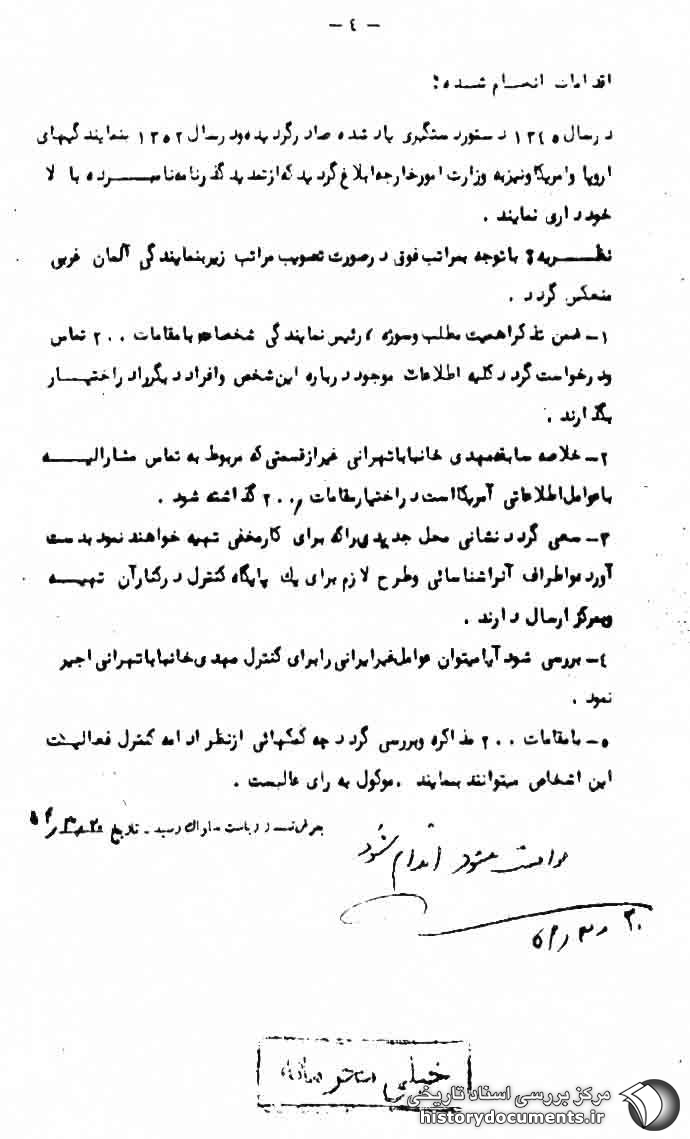 - ٤ -
اقدامات انجام شده:
در سال ١٣٤٥ دستور دستگیری یاد شده صادر گردیده و در سال ١٣٥٢ بنمایندگیهای
اروپا و امریکا و نیز به وزارت امور خارجه ابلاغ گردید که از تمدید گذرنامه نامبرده بالا
خودداری نمایند .
نظریه: با توجه بمراتب فوق در صورت تصویب مراتب زیر بنمایندگی آلمان غربی
منعکس گردد .
١- ضمن تذکر اهمیت مطلب و سوژه ، رئیس نمایندگی شخصا با مقامات ٢٠٠ تماس
و درخواست گردد کلیه اطلاعات موجود درباره این شخص و افراد دیگر را در اختیار
بگذارند .
٢- خلاصه سابقه مهدی خانبابا تهرانی غیر از قسمتی که مربوط به تماس مشارالیه
با عوامل اطلاعاتی آمریکا است در اختیار مقامات ٢٠٠ گذاشته شود .
٣- سعی گردد نشانی محل جدیدی را که برای کار مخفی تهیه خواهند نمود بدست
آورده و اطراف آنرا شناسائی و طرح لازم برای یك پایگاه کنترل در کنار آن تهیه
و بمرکز ارسال دارند .
٤- بررسی شود آیا میتوان عوامل غیر ایرانی را برای کنترل مهدی خانبابا تهرانی اجیر
نمود .
٥- با مقامات ٢٠٠ مذاکره و بررسی گردد چه کمکهائی از نظر ادامه کنترل فعالیت
این اشخاص میتوانند بنمایند . موکول به رای عالیست .
بعرض ریاست ساواك رسید - تاریخ
موافقت میشود اقدام شود
٥٤/٣/٣٠
خیلی محرمانه
مرکز بررسی اسناد تاریخی
historydocuments.ir